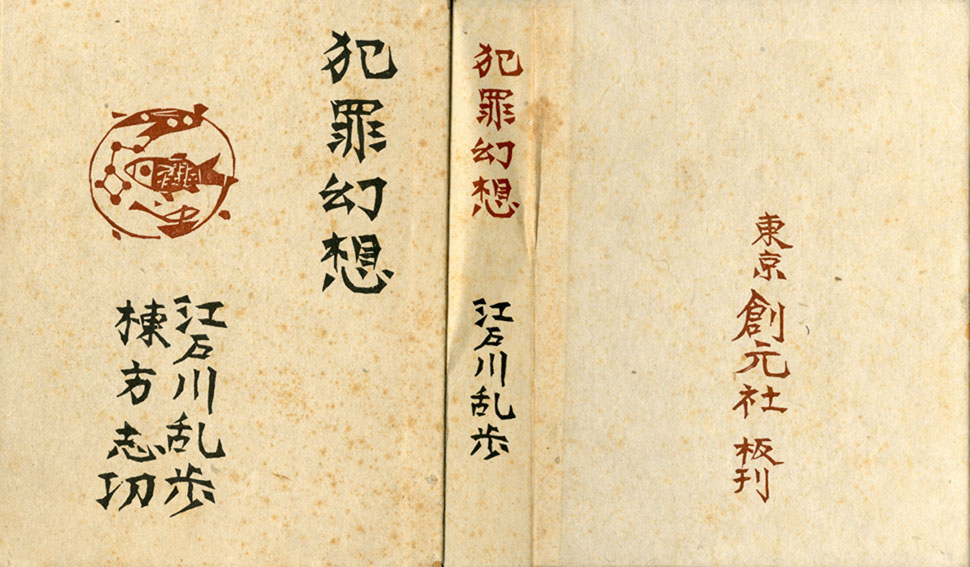 犯罪幻想
江戸川乱歩
棟方志功
犯罪幻想
江戸川乱歩
東京創元社板刊